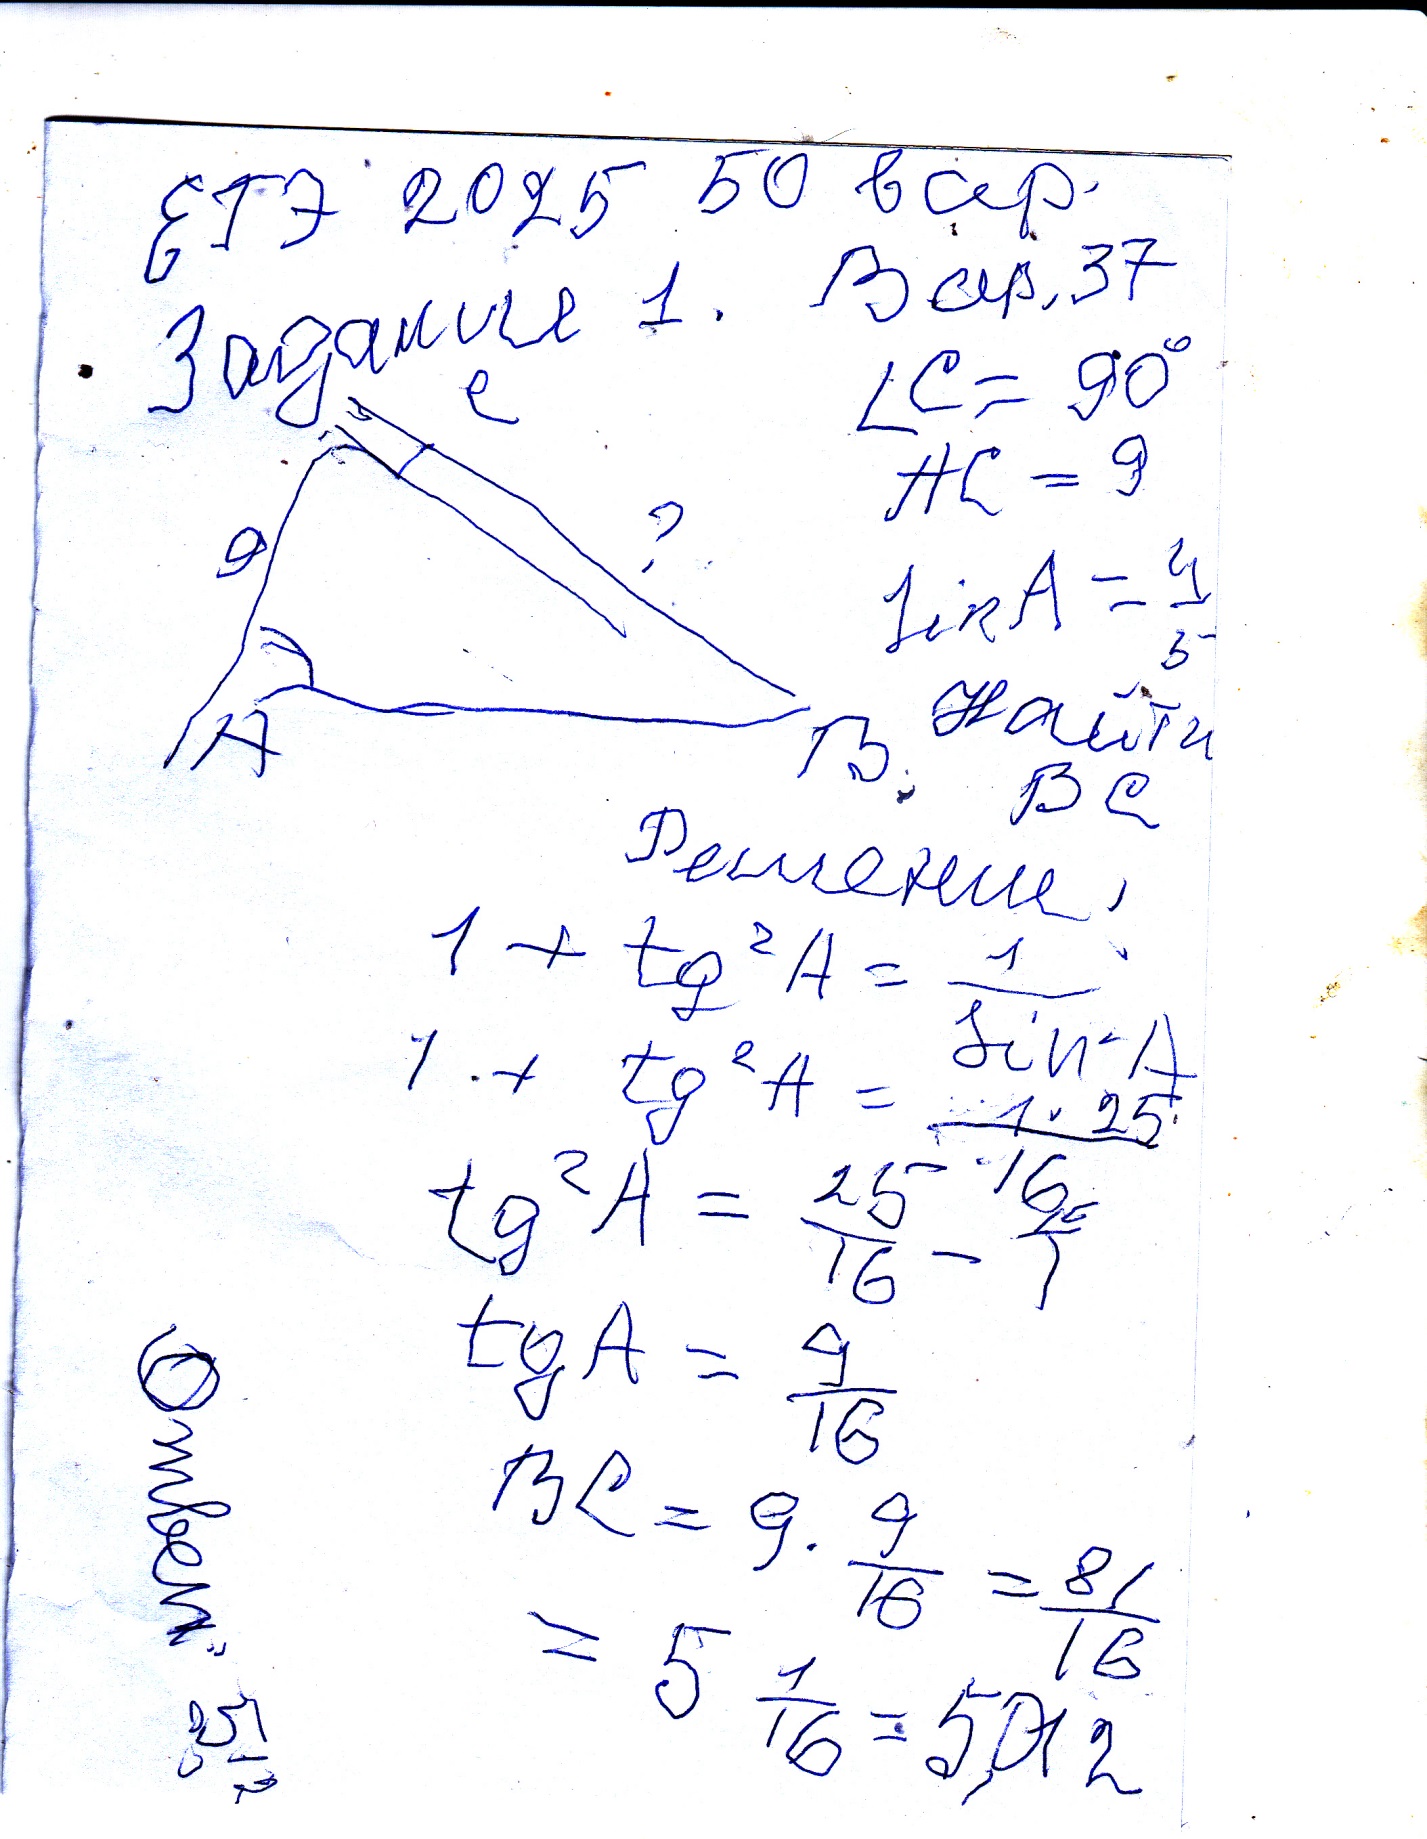 ЕГЭ 2025 50 вар.
Задание 1. Вар. 37
C
∠C = 90°
AC = 9
9
?
sin A = 4/5
A
B
Найти
BC
Решение:
1 + tg²A = 1/sin²A
1 + tg²A = 1·25/16
tg²A = 25/16 - 1
tgA = 9/16
BC = 9 · 9/16 = 81/16
= 5 1/16 = 5,012
Ответ: